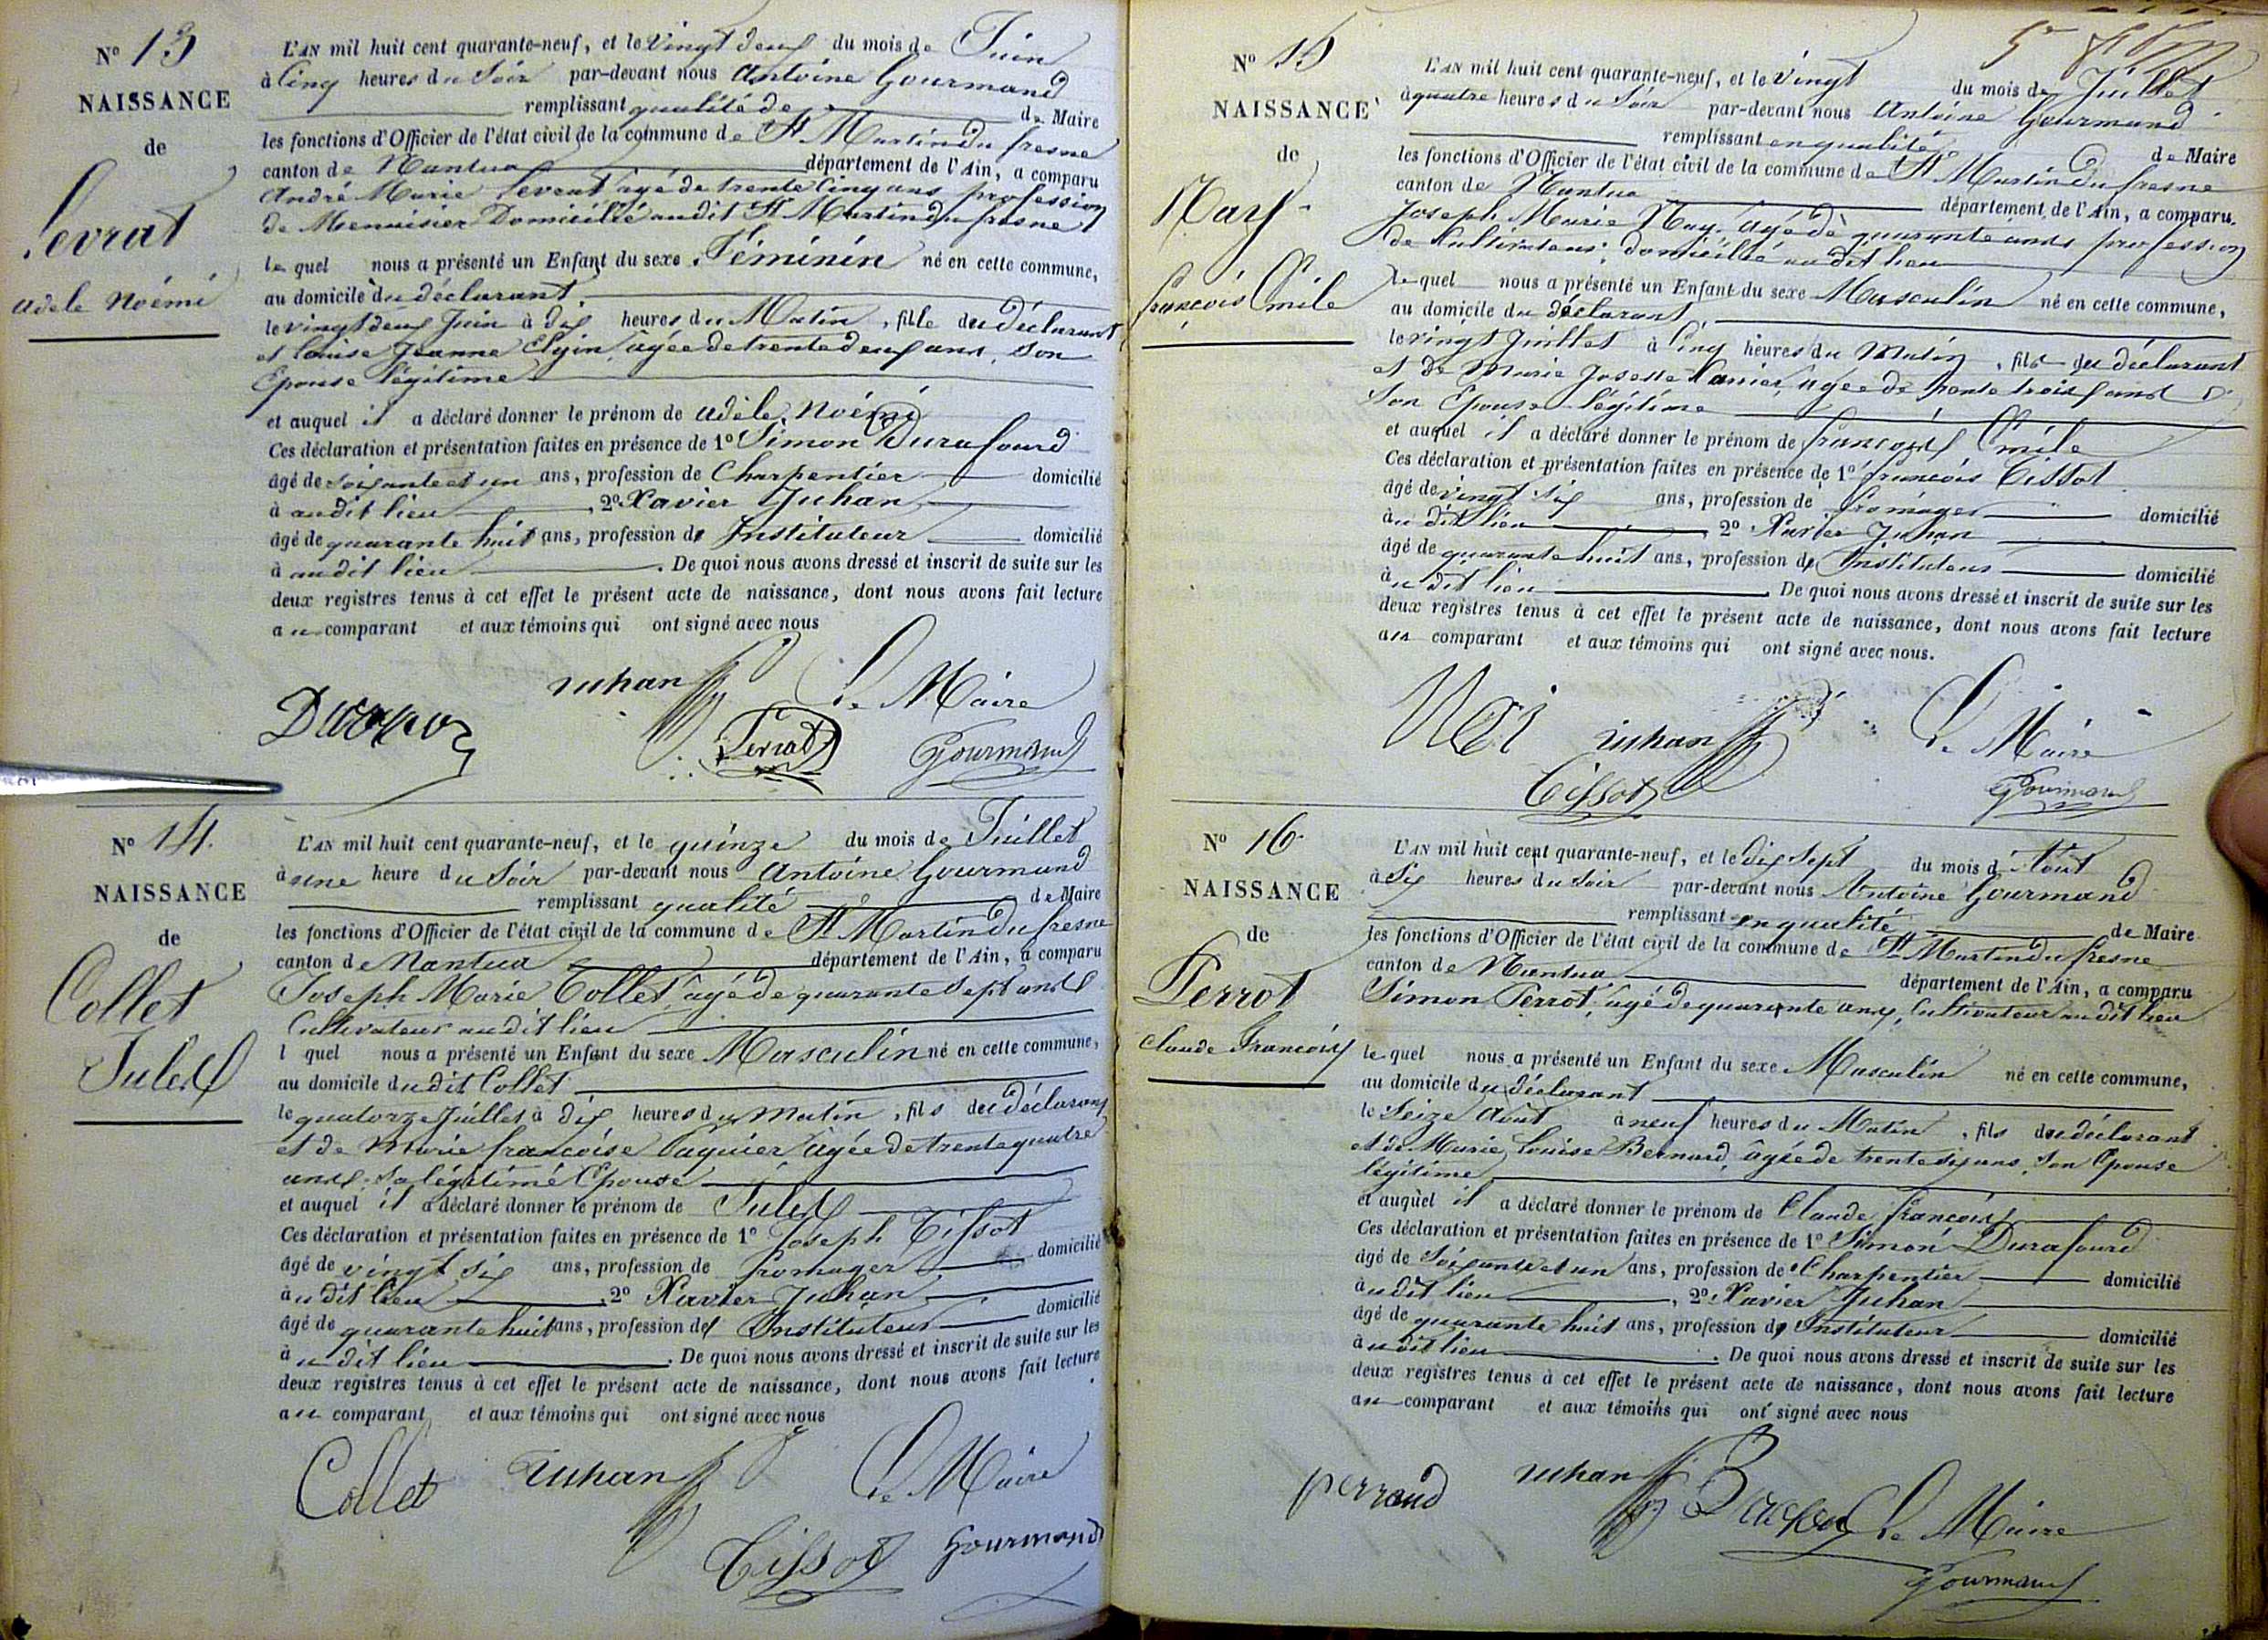 N° 13
NAISSANCE
de
Levrat
adele Noémi
L'AN mil huit cent quarante-neuf, et le Vingt deux du mois de Juin
à Cinq heures du Soir par-devant nous Antoine Gourmand
remplissant qualité de de Maire
les fonctions d'Officier de l'état civil de la commune de St Martin du fresne
canton de Nantua département de l'Ain, a comparu
André Marie Levrat âgé de trente Cinq ans profession
de Menuisier Domicilié audit St Martin du fresne
le quel nous a présenté un Enfant du sexe Féminin né en cette commune,
au domicile du déclarant
le vingt deux Juin à dix heures du Matin, fille du déclarant
et Louise Jeanne âgée de trente deux ans, Son
Epouse légitime
et auquel il a déclaré donner le prénom de adèle Noémi
Ces déclaration et présentation faites en présence de 1° Simon Durafourd
âgé de Soixante et un ans, profession de Charpentier domicilié
à audit lieu, 2° Xavier Juhan
âgé de quarante huit ans, profession de Instituteur domicilié
à audit lieu. De quoi nous avons dressé et inscrit de suite sur les
deux registres tenus à cet effet le présent acte de naissance, dont nous avons fait lecture
au comparant et aux témoins qui ont signé avec nous
Juhan Le Maire
Levrat Gourmand
N° 14
NAISSANCE
de
Collet
Jules
L'AN mil huit cent quarante-neuf, et le quinze du mois de Juillet
à une heure du Soir par-devant nous Antoine Gourmand
remplissant qualité de Maire
les fonctions d'Officier de l'état civil de la commune de St Martin du fresne
canton de Nantua département de l'Ain, a comparu
Joseph Marie Collet, âgé de quarante sept ans
Cultivateur audit lieu
l quel nous a présenté un Enfant du sexe Masculin né en cette commune,
au domicile dudit Collet
le quatorze Juillet à dix heures du Matin, fils du déclarant
et de Marie françoise âgée de trente quatre
ans, Sa légitime Epouse
et auquel il a déclaré donner le prénom de Jules
Ces déclaration et présentation faites en présence de 1° Joseph Tissot
âgé de vingt six ans, profession de fromager domicilié
à udit lieu, 2° Xavier Juhan
âgé de quarante huit ans, profession de Instituteur domicilié
à udit lieu. De quoi nous avons dressé et inscrit de suite sur les
deux registres tenus à cet effet le présent acte de naissance, dont nous avons fait lecture
au comparant et aux témoins qui ont signé avec nous
Collet Juhan Le Maire
Tissot Gourmand
N° 15
NAISSANCE
de
Nay
françois Emile
L'AN mil huit cent quarante-neuf, et le vingt du mois de Juillet
à quatre heures du Soir par-devant nous Antoine Gourmand
remplissant en qualité de Maire
les fonctions d'Officier de l'état civil de la commune de St Martin du fresne
canton de Nantua département de l'Ain, a comparu.
Joseph Marie Nay, âgé de quarante ans profession
de Cultivateur, domicilié au dit lieu
le quel nous a présenté un Enfant du sexe Masculin né en cette commune,
au domicile du déclarant
le vingt Juillet à Cinq heures du Matin, fils du déclarant
et de Marie Josette âgée de trente trois ans
Son Epouse légitime
et auquel il a déclaré donner le prénom de françois Emile
Ces déclaration et présentation faites en présence de 1° françois Tissot
âgé de vingt six ans, profession de fromager domicilié
à u dit lieu 2° Xavier Juhan
âgé de quarante huit ans, profession de Instituteur domicilié
à u dit lieu. De quoi nous avons dressé et inscrit de suite sur les
deux registres tenus à cet effet le présent acte de naissance, dont nous avons fait lecture
au comparant et aux témoins qui ont signé avec nous.
Juhan Le Maire
Tissot Gourmand
N° 16
NAISSANCE
de
Perrot
Claude François
L'AN mil huit cent quarante-neuf, et le dix Sept du mois d'Aout
à Six heures du Soir par-devant nous Antoine Gourmand
remplissant en qualité de Maire
les fonctions d'Officier de l'état civil de la commune de St Martin du fresne
canton de Nantua département de l'Ain, a comparu
Simon Perrot, âgé de quarante ans, Cultivateur au dit lieu
le quel nous a présenté un Enfant du sexe Masculin né en cette commune,
au domicile du déclarant
le Seize Août à neuf heures du Matin, fils du déclarant
et de Marie Louise Bernard, âgée de trente six ans, Son Epouse
légitime
et auquel il a déclaré donner le prénom de Claude françois
Ces déclaration et présentation faites en présence de 1° Simon Durafourd
âgé de Soixante et un ans, profession de Charpentier domicilié
à udit lieu, 2° Xavier Juhan
âgé de quarante huit ans, profession de Instituteur domicilié
à udit lieu. De quoi nous avons dressé et inscrit de suite sur les
deux registres tenus à cet effet le présent acte de naissance, dont nous avons fait lecture
au comparant et aux témoins qui ont signé avec nous
perraud Juhan Le Maire
Gourmand